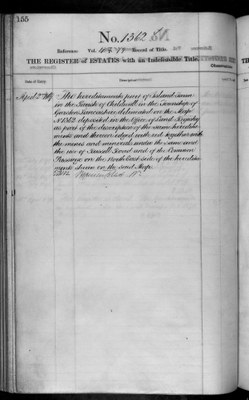 155
No. 1562
Reference Vol. Record of Title.
THE REGISTER of ESTATES with an Indefeasible Title.
Date of Entry Description
The hereditaments part of Island
in the Parish of Childwall in the Township of
Garston Lancashire delineated on the Map
No 1562 deposited in the Office of Land Registry
as part of the description of the same heredita-
ments and thereon edged with red together with
the mines and minerals under the same and
the use of Road and of the Common
Passage on the North East side of the heredita-
ments shewn on the said Map.